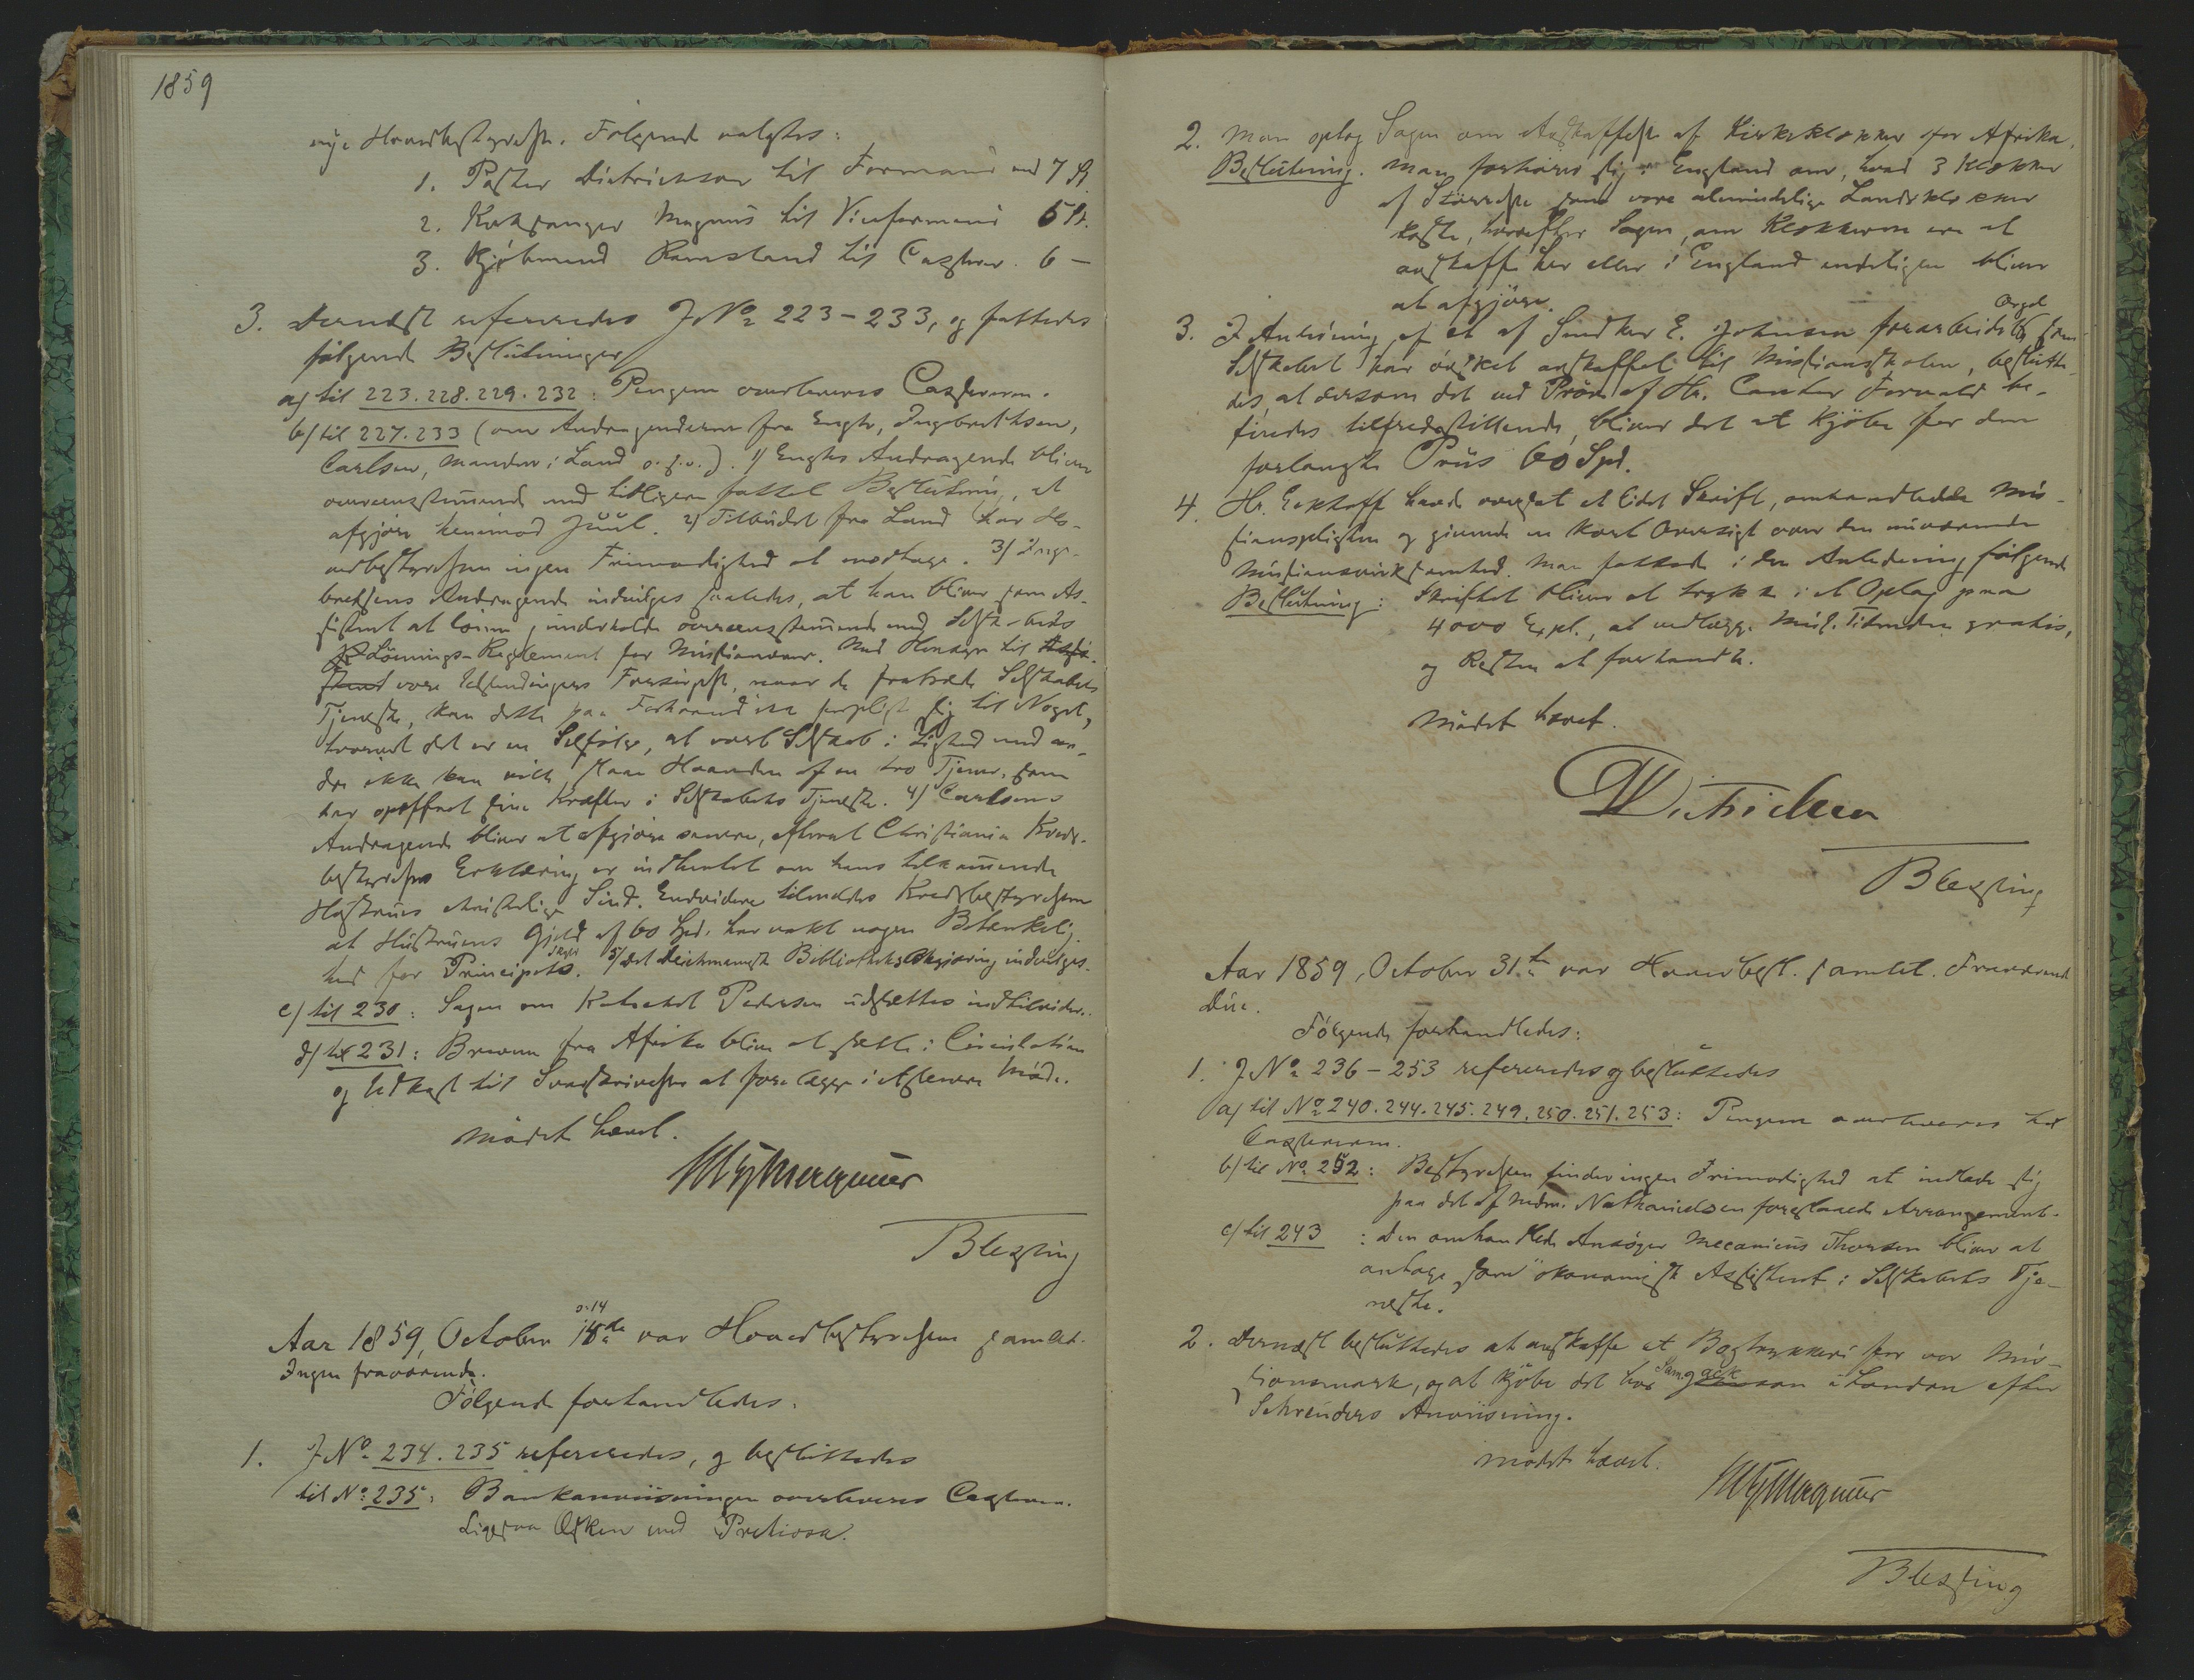 1859
nye Hovedbestyrelse. Følgende valgtes:
1. Pastor Dietrichson til Formand med 7 St.
2. Kirkesanger Magnus til Viceformand 5 St.
3. Kjøbmand Ramsland til Casserer. 6 —
3. Dernæst refereredes J№ 223-233, og fattedes
følgende Beslutninger
a) til 223.228.229.232: Pengene overleveres Casseren.
b) til 227.233 (om Andragenderne fra Engh, Ingebrethsen,
Carlsen, Manden i Land o.s.v.). 1) Enghs Andragende bliver
overensstemmende med tidligere fattet Beslutning, at
afgjøre henimod Juul. 2) Tilbudet fra Land har Ho-
vedbestyrelsen ingen Frimodighed at modtage. 3) Inge-
brethsens Andragende indvilges saaledes, at han bliver som As-
sistent at lønne, underholde overensstemmende med Selsk-abets
Lønnings-Reglement for Missionærer. Med Hensyn til Assi-
stent vore Udsendingers Forsørgelse, naar de fratræde Selskabets
Tjeneste, kan dette paa Forhaand ikke forpligte sig til Noget,
hvorvel det er en Selvfølge, at vort Selskab i Lighed med an-
dre ikke kan ville slaae Haanden af en tro Tjener, som
har opoffret sine Kræfter i Selskabets Tjeneste. 4) Carlsens
Andragende bliver at afgjøre senere, efterat Christiania Kreds-
bestyrelses Erklæring er indhentet om hans tilkommende
Hustrues christelige Sind. Endvidere tilmeldes Kredsbestyrelsen
at Hustruens Gjeld af 60 Spd. har vakt nogen Betænkelig-
hed for Principets Skyld. 5) Det Deichmanske Bibliotheks Begjæring indvilges.
c) til 230: Sagen om Kateket Pedersen udsættes indtilvidere.
d) til 231: Brevene fra Afrika bliver at sætte i Circulation
og Udkast til Svarskrivelse at forelægge i et senere Møde.
Mødet hævet.
Magnus
Blessing
Aar 1859, October 14de var Hovedbestyrelsen samlet.
Ingen fraværende.
Følgende forhandledes:
1. J№ 234.235 refereredes, og besluttedes
til №: 235: Bankanviisningen overleveres Casseren.
Ligesaa Æsken med Pretiosa.
2. Man optog Sagen om Anskaffelse af Kirkeklokker for Afrika.
Beslutning. Man forhører sig i England om, hvad 3 Klokker
af Størrelse som vore almindelige Landsklokker
koste, hvorefter Sagen, om Klokkerne ere at
anskaffe her eller i England endeligen bliver
at afgjøre.
3. I Anledning af et af Snedker E. Johnsen forarbeidet Orgel som
Selskabet har ønsket anskaffet til Missionsskolen, beslutte-
des, at dersom det ved Prøve af Hr. Cantor Fornald be-
findes tilfredsstillende, bliver det at kjøbe for den
forlangte Priis 60 Spd.
4. Hr. Eckhoff havde oversat et lidet Skrift, omhandlende Mis-
sionspligten og givende en kort Oversigt over den nuværende
Missionsvirksomhed. Man fattede i den Anledning følgende
Beslutning: Skriftet bliver at trykke i et Oplag paa
4000 Expl., at vedlægge Miss. Tidenden gratis,
og Resten at forhandle.
Mødet hævet.
Dietrichson
Blessing
Aar 1859, October 31te var Hovedbest. samlet. Fraværende
Due.
Følgende forhandledes:
1. J№ 236-253 refereredes og besluttedes
a) til № 240.244.245.249.250.251.253: Pengene overleveres til
Casseren.
b) til № 252: Bestyrelsen finder ingen Frimodighed at indlade sig
paa det af Nathanielsen foreslaaede Arrangement.
c) til 243: Den omhandlede Ansøger Mecanicus Thorsen bliver at
antage som økonomisk Assistent i Selskabets Tje-
neste.
2. Dernæst besluttedes at anskaffe et Bogtrykkeri for vor Mis-
sionsmark, og at kjøbe det hos i London efter
Schreuders Anviisning.
Mødet hævet.
Magnus
Blessing